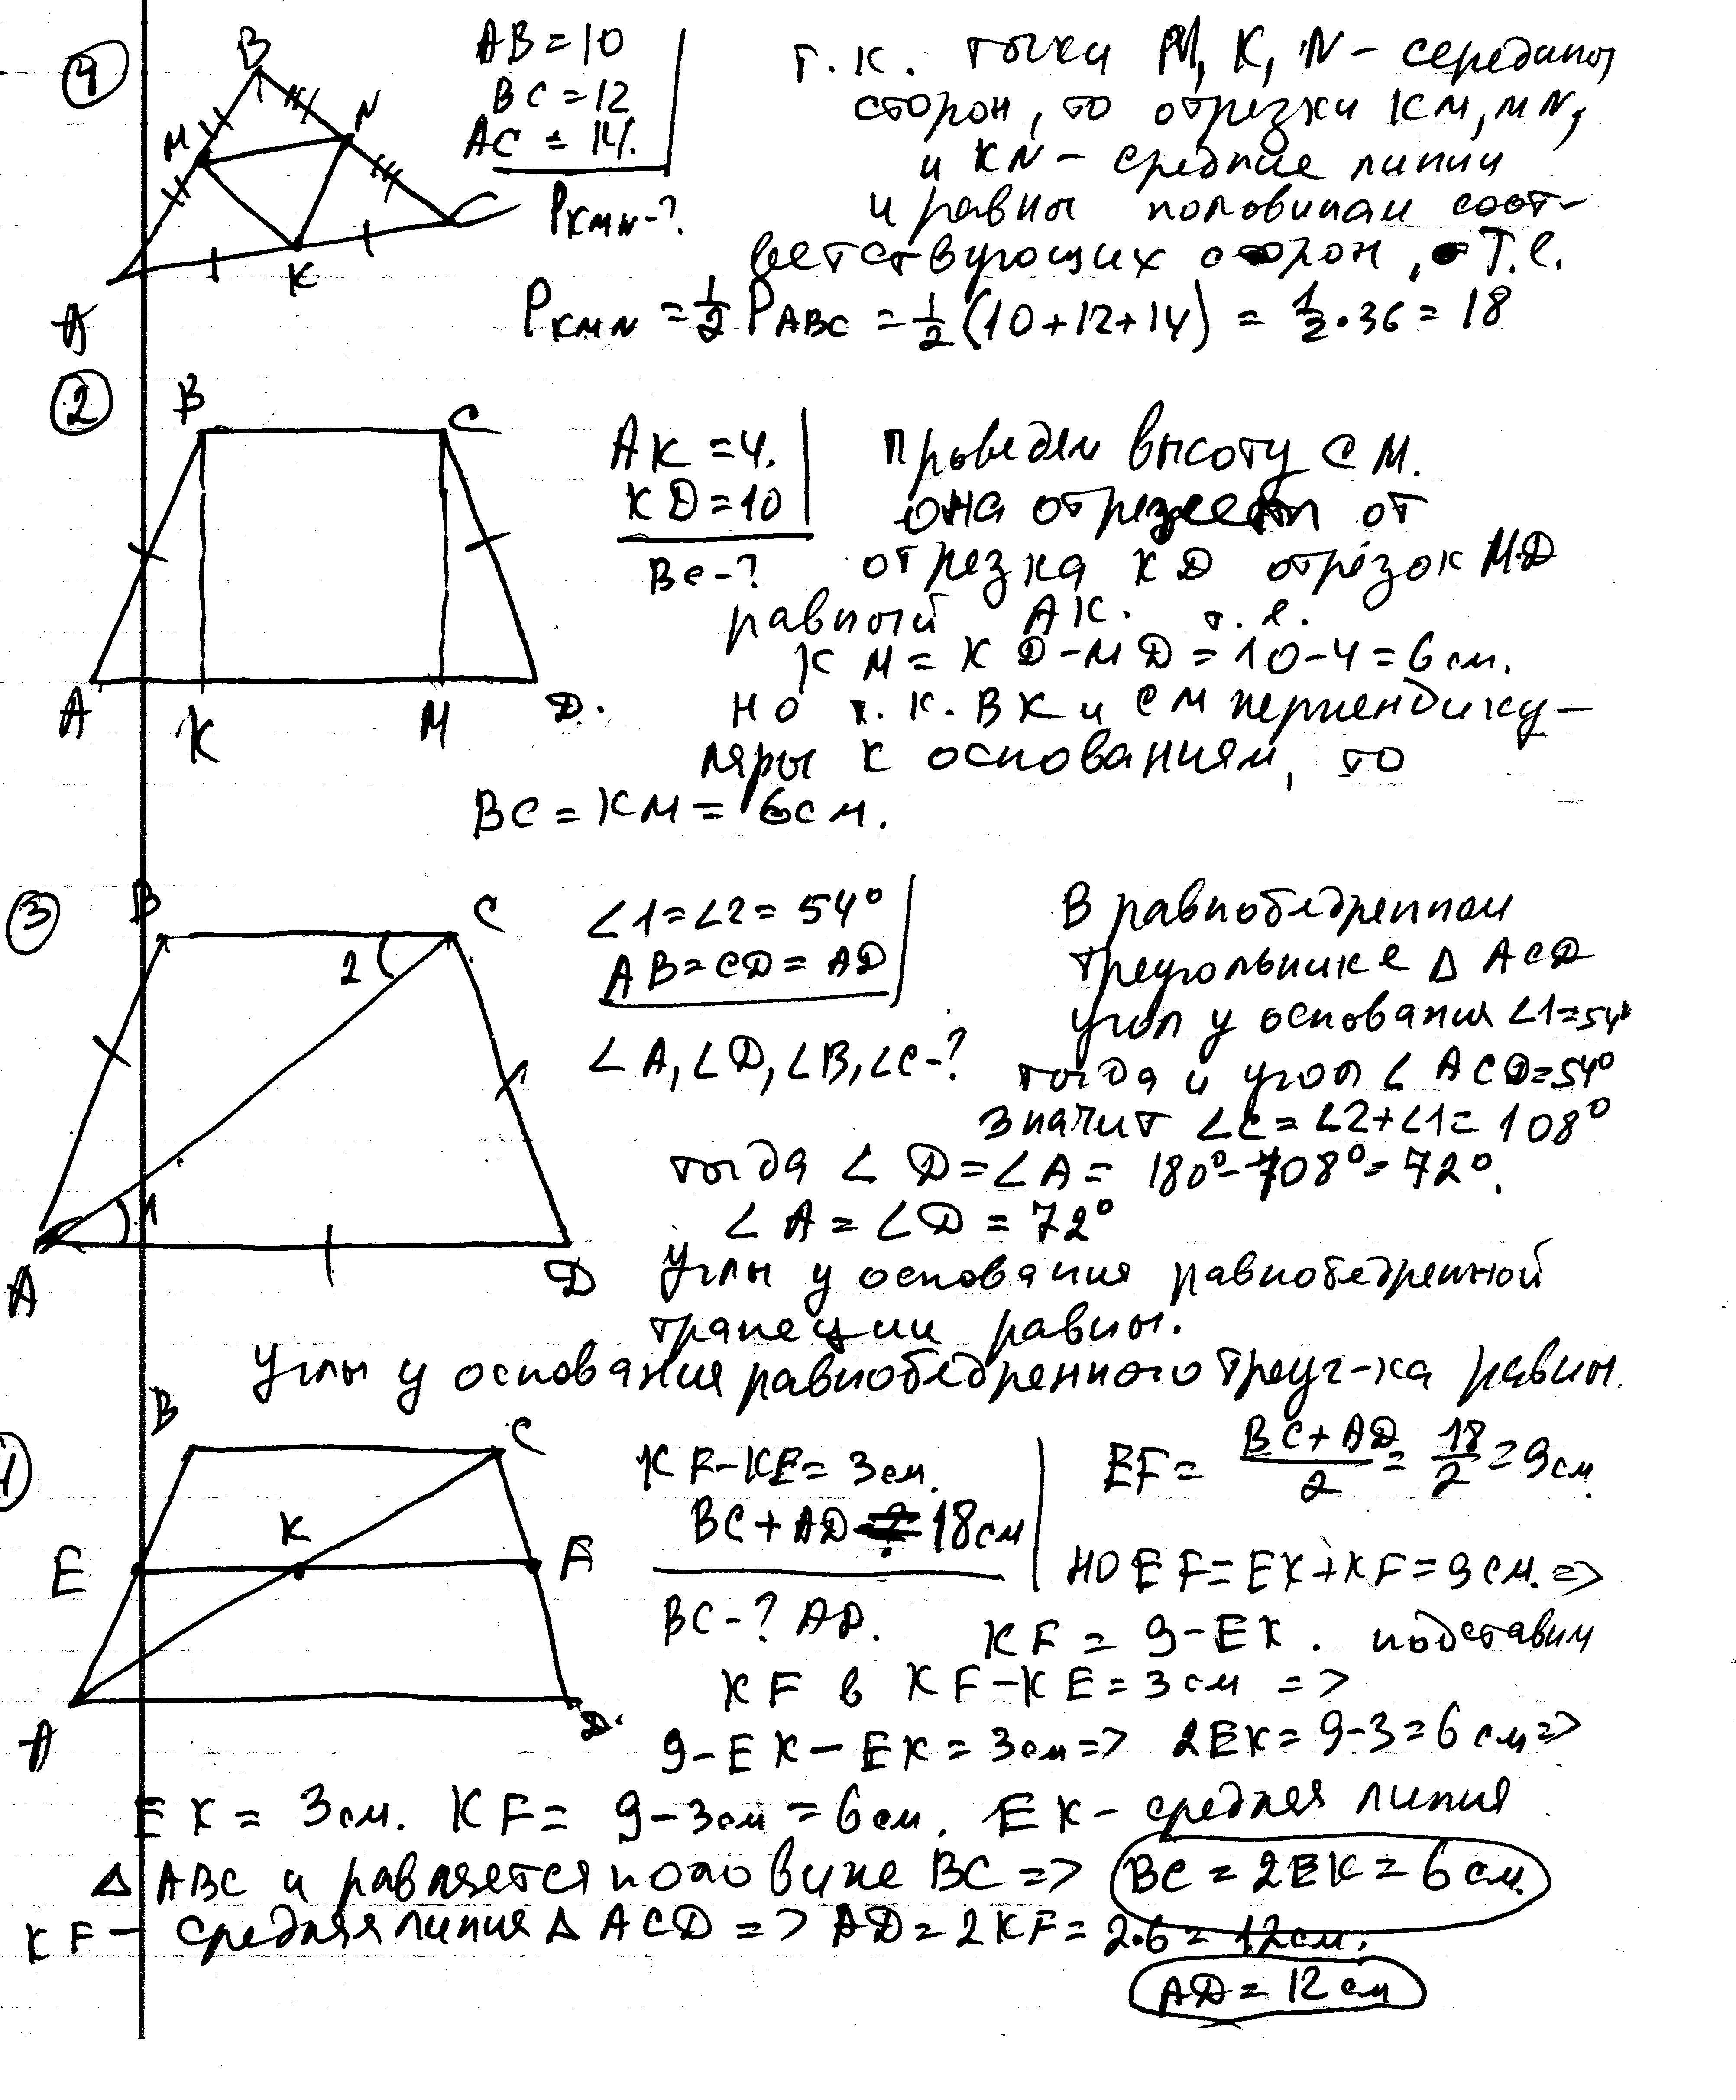 1
B
M
N
A
K
C
AB=10
BC=12
AC=14.
P_KMN-?
т.к. точки M, K, N - середины
сторон, то отрезки KM, MN,
и KN - средние линии
и равны половинам соот-
ветствующих сторон, т.е.
P_KMN = 1/2 P_ABC = 1/2 (10+12+14) = 1/2·36 = 18
2
B
C
A
K
M
D.
AK=4.
KD=10
BC-?
проведем высоту CM.
она отрезает от
отрезка KD отрезок MD
равный AK. т.е.
KM = KD-MD = 10-4 = 6см.
но т.к. BK и CM перпендику-
ляры к основаниям, то
BC = KM = 6см.
3
B
C
2
1
A
D
∠1=∠2=54°
AB=CD=AD
∠A,∠D,∠B,∠C-?
В равнобедренном
треугольнике Δ ACD
угол у основания ∠1=54°
тогда и угол ∠ ACD=54°
значит ∠C=∠2+∠1= 108°
тогда ∠D=∠A= 180°-108°=72°.
∠A=∠D=72°
Углы у основания равнобедренной
трапеции равны.
Углы у основания равнобедренного треуг-ка равны.
4
B
C
E
K
F
A
D.
KF-KE=3см.
BC+AD 18см
BC-? AD.
EF = (BC+AD)/2 = 18/2 = 9см.
но EF=EK+KF=9см.=>
KF = 9-EK. подставим
KF в KF-KE=3см =>
9-EK-EK=3см=> 2EK=9-3=6см=>
EK = 3см. KF = 9-3см = 6см. EK- средняя линия
Δ ABC и равняется половине BC => BC=2EK=6см.
KF - средняя линия Δ ACD => AD=2KF=2·6=12см.
AD=12см